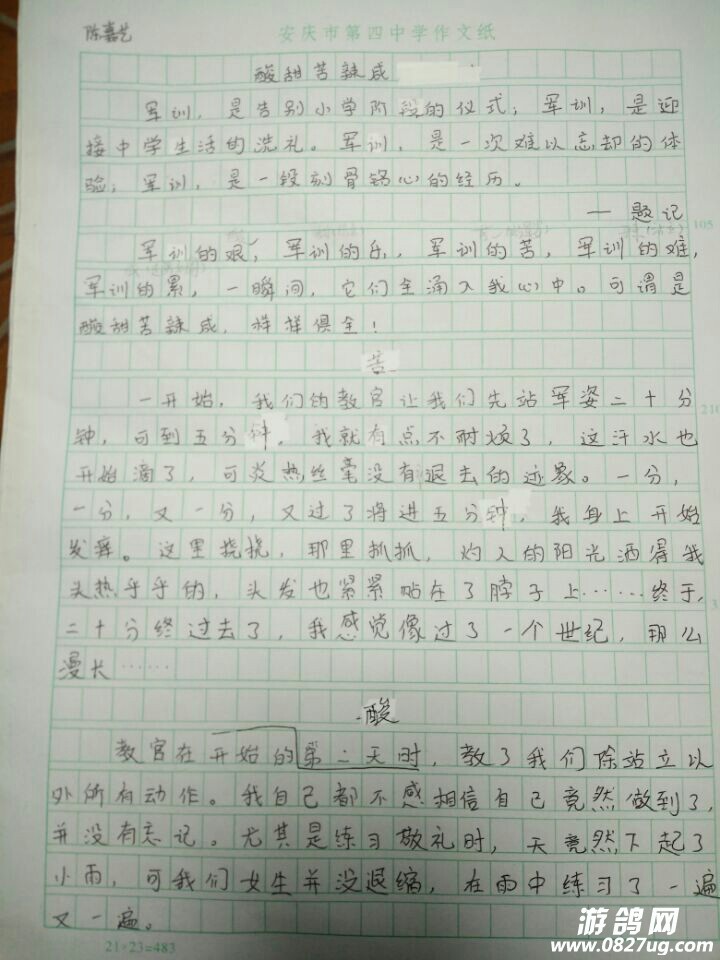 陈嘉艺
安庆市第四中学作文纸
酸甜苦辣咸
军训，是告别小学阶段的仪式；军训，是迎
接中学生活的洗礼。军训，是一次难以忘却的体
验；军训，是一段刻骨铭心的经历。
——题记
军训的艰，军训的乐，军训的苦，军训的难，
军训的累，一瞬间，它们全涌入我心中。可谓是
酸甜苦辣咸，样样俱全！
苦
一开始，我们的教官让我们先站军姿二十分
钟，可到五分钟，我就有点不耐烦了，这汗水也
开始滴了，可炎热丝毫没有退去的迹象。一分，
一分，又一分，又过了将进五分钟，我身上开始
发痒。这里挠挠，那里抓抓，灼人的阳光洒得我
头热乎乎的，头发也紧紧帖在了脖子上……终于，
二十分终过去了，我感觉像过了一个世纪，那么
漫长……
酸
教官在开始的第二天时，教了我们除站立以
外所有动作。我自己都不感相信自己竟然做到了，
并没有忘记。尤其是练习敬礼时，天竟然下起了
小雨，可我们女生并没退缩，在雨中练习了一遍
又一遍。
21×23=483
105
210
3
游鸽网
www.0827ug.com